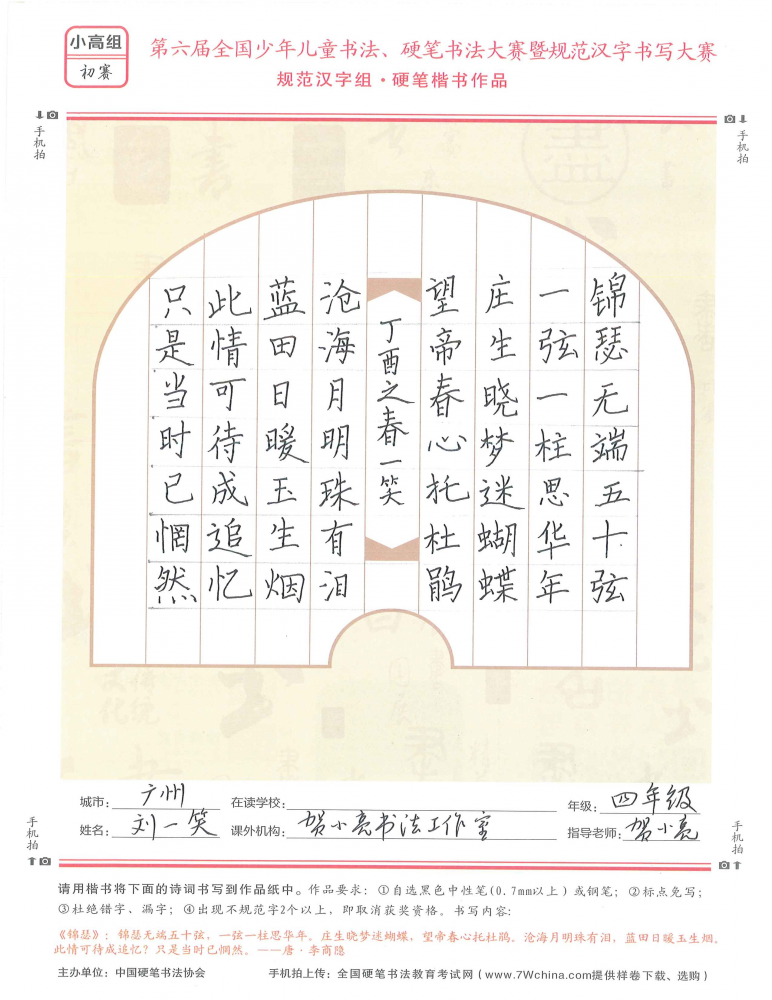 小高组
初赛
第六届全国少年儿童书法、硬笔书法大赛暨规范汉字书写大赛
规范汉字组·硬笔楷书作品
手机拍
手机拍
锦瑟无端五十弦
一弦一柱思华年
庄生晓梦迷蝴蝶
望帝春心托杜鹃
丁酉之春一笑
沧海月明珠有泪
蓝田日暖玉生烟
此情可待成追忆
只是当时已惘然
手机拍
手机拍
城市：广州 在读学校： 年级：四年级
姓名：刘一笑 课外机构：贺小亮书法工作室 指导老师：贺小亮
请用楷书将下面的诗词书写到作品纸中。作品要求：①自选黑色中性笔(0.7mm以上）或钢笔；②标点免写；
③杜绝错字、漏字；④出现不规范字2个以上，即取消获奖资格。书写内容：
《锦瑟》：锦瑟无端五十弦，一弦一柱思华年。庄生晓梦迷蝴蝶，望帝春心托杜鹃。沧海月明珠有泪，蓝田日暖玉生烟。
此情可待成追忆？只是当时已惘然。——唐·李商隐
主办单位：中国硬笔书法协会 手机拍上传：全国硬笔书法教育考试网（www.7Wchina.com提供样卷下载、选购）